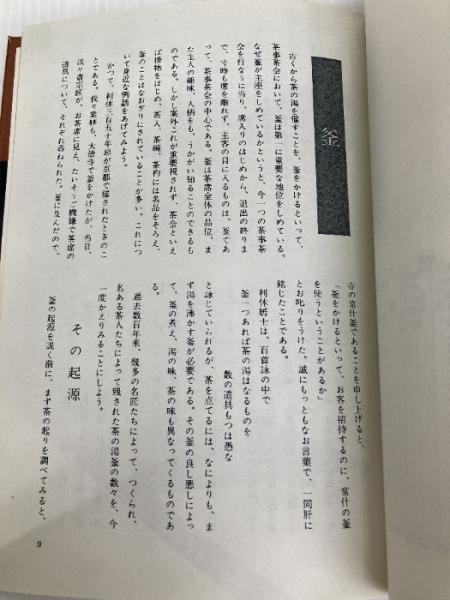 釜
古くから茶の湯を催すことを、釜をかけるといって、
茶事茶会において、釜は第一に重要な地位をしめている。
なぜ釜が王座をしめているかというと、今一つの茶事茶
会を行なうに当り、席入りのはじめから、退出の終りま
で、寸時も席を離れず、主客の目に入るものは、釜であ
って、茶事茶会の中心である。釜は茶席全体の品位、ま
た主人の趣味、人柄をも、うかがい知ることのできるも
のである。しかし案外これが重要視されず、茶会といえ
ば掛物をはじめ、茶入、茶碗、茶杓には名品をそろえ、
釜のことはなおざりにされていることが多い。これにつ
いて身近な例話をあげてみよう。
かつて、利休三百五十年忌が京都で催されたときのこ
とである。我々業林も、大徳寺で釜をかけたが、当日、
淡々斎宗匠が、お茶席に見え、たいそうご機嫌で茶席の
道具について、それぞれ尋ねられた。釜に及んだので、
寺の常什釜であることを申し上げると、
「釜をかけるといって、お客を招待するのに、常什の釜
を使うということがあるか」
とお叱りをうけた。誠にもっともなお言葉で、一同肝に
銘じたことである。
利休居士は、百首詠の中で
釜一つあれば茶の湯はなるものを
数の道具もつは愚な
と詠じていられるが、茶を点てるには、なによりも、ま
ず湯を沸かす釜が必要である。その釜の良し悪しによっ
て、釜の煮え、湯の味、茶の味も異なってくるものであ
る。
過去数百年来、幾多の名匠たちによって、つくられ、
名ある茶人たちによって残された茶の湯釜の数々を、今
一度かえりみることにしよう。
その起源
釜の起源を説く前に、まず茶の起りを調べてみると、
9